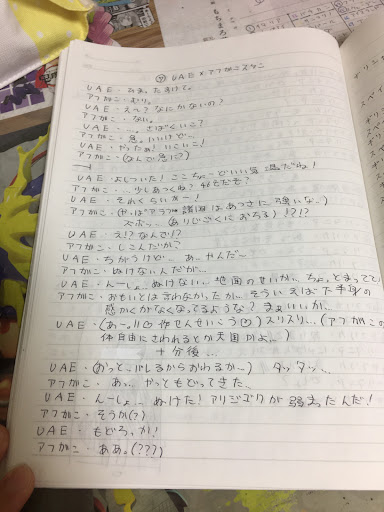 ㋐ UAE×アフガニスタン
UAE・ひま。たすけて。
アフガニ・むり。
UAE・え〜?なにかないの?
アフガニ・ない。
UAE・…。さばくいこ?
アフガニ・急。いいけど…
UAE・やったぁ!いこいこ!
アフガニ・(なんで急に?)
UAE・よしついた!ここちょーどいい気温だね!
アフガニ・…少しあつくね?46℃だぞ?
UAE・それくらいかー!
アフガニ・(やっぱアラブ諸国はあつさに強いな…)
ズボッ…(ありじごくにおちる)!?!?
UAE・え!?なんで!?
アフガニ・しこんだか?
UAE・ちがうけど…あっ、やんだ〜
アフガニ・ぬけない人だが…
UAE・んーしょ…ぬけない…地面のせいか…ちょっとまってて
アフガニ・おもいとは言わなかったか…そういえばただ手身の
感かくがなくなってるような?まぁいいか…
UAE・(あーっ!!作せんせいこう)スリスリ…(アフガニの
体自由にさわれるとか天国かよ…)
十分後…
UAE・(おっと…バレるからおわるか〜)タッタッ…
アフガニ・あっ、やっともどってきた。
UAE・んーしょ…ぬけた!アリジゴクが弱まったんだ!
アフガニ・そうか(?)
UAE・もどろっか!
アフガニ・ああ。(???)